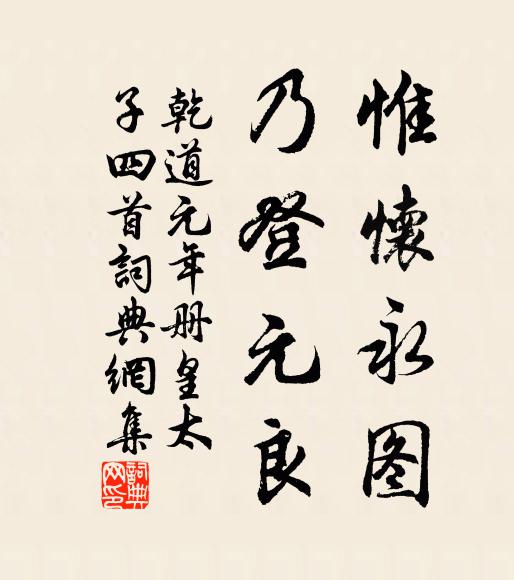 惟懷永图
乃登元良
乾道元年册皇太
子四首詞典網集
詞典网印